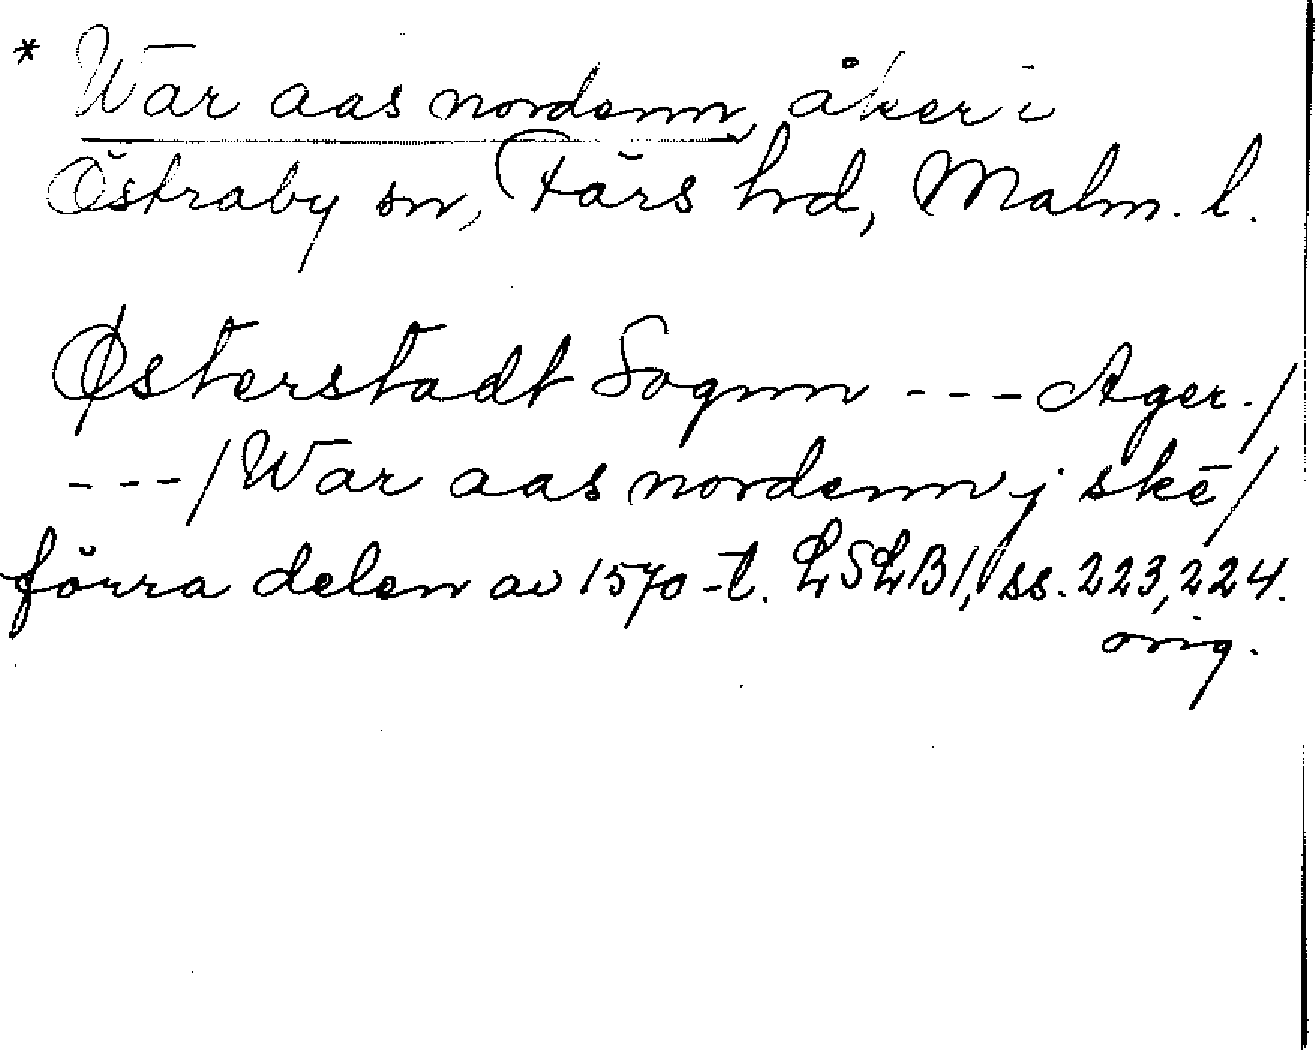 * War aas nordenn, åker i
Östraby sn, Färs hd, Malm. l.
Østerstadt Sognn --- Ager./
---/War aas nordenn j skē/
förra delen av 1570-t. LSLB1, ss. 223, 224.
orig.